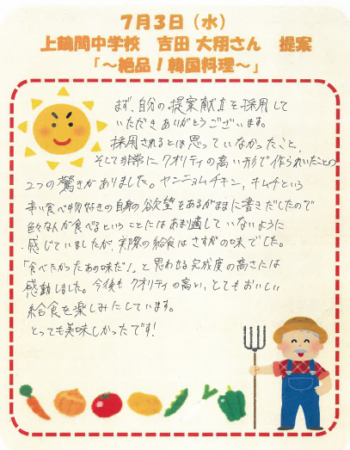 7月3日（水）
上鶴間中学校　吉田 大翔さん　提案
「～絶品！韓国料理～」
まず、自分の提案献立を採用して
いただきありがとうございます。
採用されるとは思っていなかったこと、
そして非常にクオリティの高い形で作られいたことの
2つの驚きがありました。ヤンニョムチキン、キムチという
辛い食べ物好きの自身の欲望をあるがままに書きだしたので
色々な人が食べるということにはあまり適していないように
感じていましたが、実際の給食はさすがの味でした。
「食べたかったあの味だ！」と思わせる完成度の高さには
感動しました。今後もクオリティの高い、とてもおいしい
給食を楽しみにしています。
とっても美味しかったです！